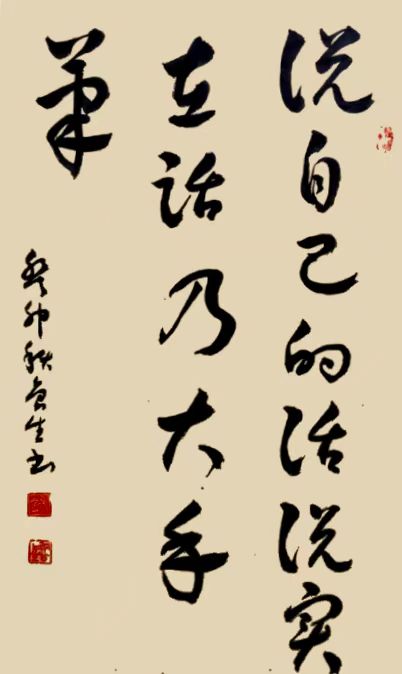 说自己的话说实
在话乃大手
笔
癸卯秋良生书